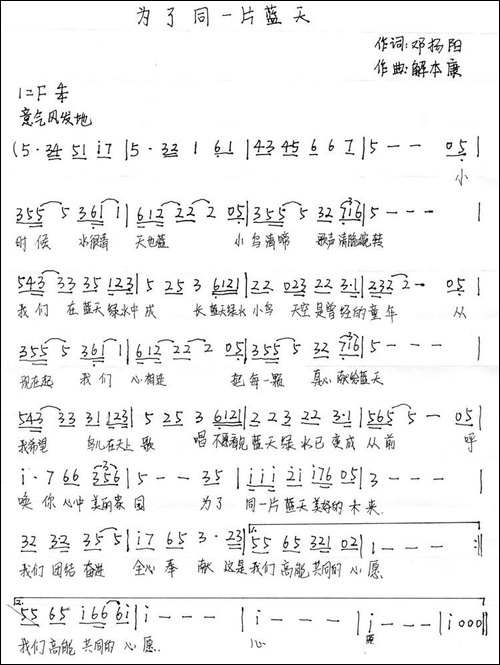 为了同一片蓝天
作词:邓扬阳
作曲:解本康
1=F 4/4
意气风发地
(5·34 51 i7 | 5·33 1 61 | 43 45 6 6 7 | 5 - - 05 |
小
355 5 361 1 | 612 22 2 05 | 355 5 32 716 | 5 - - - |
时候 水很清 天也蓝 小鸟离啼 歌声清脆婉转
543 33 35 123 | 5 25 3 6121 | 22 023 22 3·1 | 232 2 - 05 |
我们 在蓝天绿水中成 长 蓝天绿水小鸟 天空是曾经的童年 从
355 5 361 1 | 612 22 2 05 | 355 5 32 716 | 5 - - - |
现在起 我们 心相连 把每一颗 真心献给蓝天
543 33 31 123 | 5 25 3 6121 | 2 2 23 22 3·1 | 565 5 - 05 |
我希望 鸟儿在天上歌 唱 蓝天绿水已变成从前 呼
i·7 66 356 | 5 - - 35 | iii 2i i76 05 | 3 - - - |
唤你心中美丽家园 为了 同一片蓝天美好的未来
32 32 35 5 | i7 65 3·23 | 1. 55 65 321 02 | 1 - - - :||
我们团结奋进 全心奉献 这是我们高能共同的心愿
2. 55 65 i66 6i | i - - - | i - - - | i - - - | i000 ||
我们高能共同的心愿. 心 愿